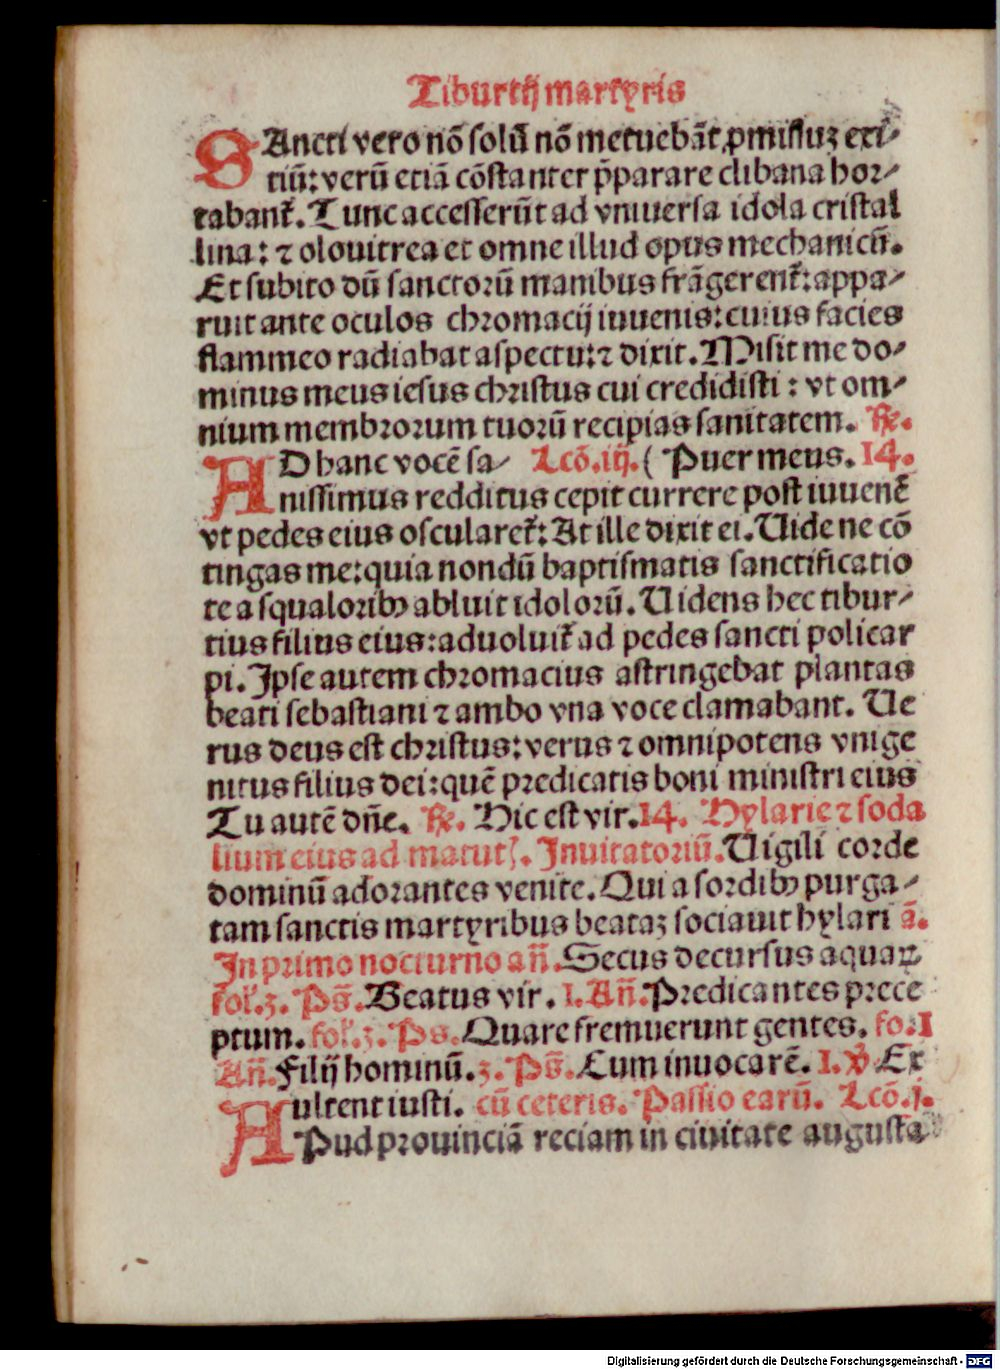 Tiburtij martyris
SAncti vero nō solū nō metuebāt ꝓmissuꝫ exi⸗
tiū: verū etiā cōstanter p̄parare clibana hor⸗
tabant᷑. Tunc accesserūt ad vniuersa idola cristal
lina: ⁊ olouitrea et omne illud opus mechanicū.
Et subito dū sanctoꝛū manibus frāgerent᷑: appa⸗
ruit ante oculos chꝛomacij iuuenis: cuius facies
flammeo radiabat aspectu: ⁊ dixit. Misit me do⸗
minus meus iesus chꝛistus cui credidisti: vt om⸗
nium membꝛoꝛum tuoꝛū recipias sanitatem. ℞.
AD hanc vocē sa⸗ Lcō.iij. ( Puer meus. 14.
nissimus redditus cepit currere post iuuenē
vt pedes eius oscularet᷑: At ille dixit ei. Uide ne cō
tingas me: quia nondū baptismatis sanctificatio
te a squaloꝛibꝰ abluit idoloꝛū. Uidens hec tibur⸗
tius filius eius: aduoluit᷑ ad pedes sancti policar
pi. Ipse autem chꝛomacius astringebat plantas
beati sebastiani ⁊ ambo vna voce clamabant. Ue
rus deus est chꝛistus: verus ⁊ omnipotens vnige
nitus filius dei: quē predicatis boni ministri eius
Tu autē dn̄e. ℞. Hic est vir. 14. Hylarie ⁊ soda
lium eius ad matut̉. Inuitatoriū. Uigili coꝛde
dominū adorantes venite. Qui a soꝛdibꝰ purga⸗
tam sanctis martyribus beataꝫ sociauit hylari ā.
In pꝛimo nocturno an̄. Secus decursus aquaꝝ.
fol̉.3. Ps̄. Beatus vir. 1. An̄. Pꝛedicantes pꝛece
ptum. fol̉.3. Ps. Quare fremuerunt gentes. fo: 1
An̄. Filij hominū. 3. Ps̄. Cum inuocarē. 1. ꝟ Ex
ultent iusti. cū ceteris. Passio earū. Lcō.j.
APud pꝛouinciā reciam in ciuitate augusta
Digitalisierung gefördert durch die Deutsche Forschungsgemeinschaft - DFG